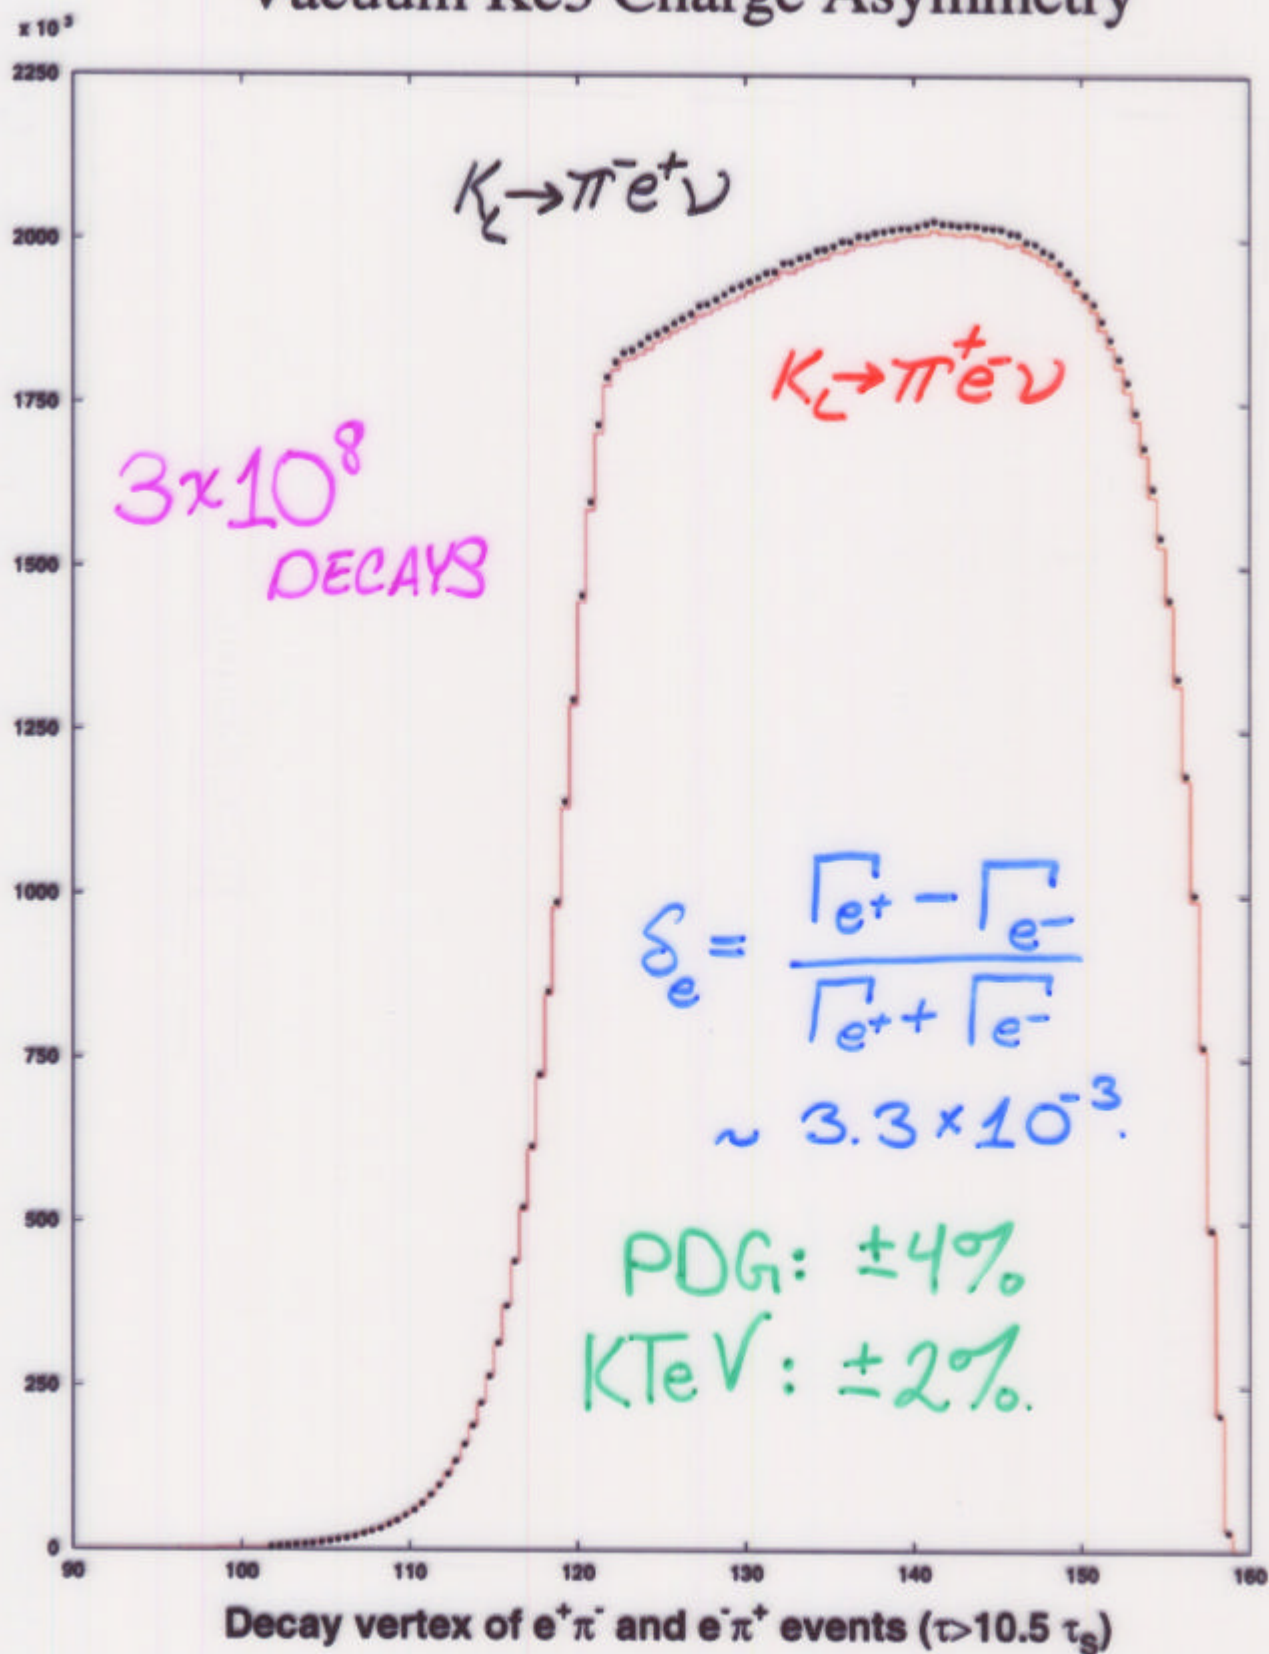 Vacuum Ke3 Charge Asymmetry
x 10³
2250
2000
1750
1500
1250
1000
750
500
250
0
K_L→π⁻e⁺ν
K_L→π⁺e⁻ν
3×10⁸
DECAYS
δ_e = (Γ_e⁺ − Γ_e⁻) / (Γ_e⁺ + Γ_e⁻)
~ 3.3×10⁻³.
PDG: ±4%
KTeV: ±2%.
90 100 110 120 130 140 150 160
Decay vertex of e⁺π⁻ and e⁻π⁺ events (τ>10.5 τ_S)